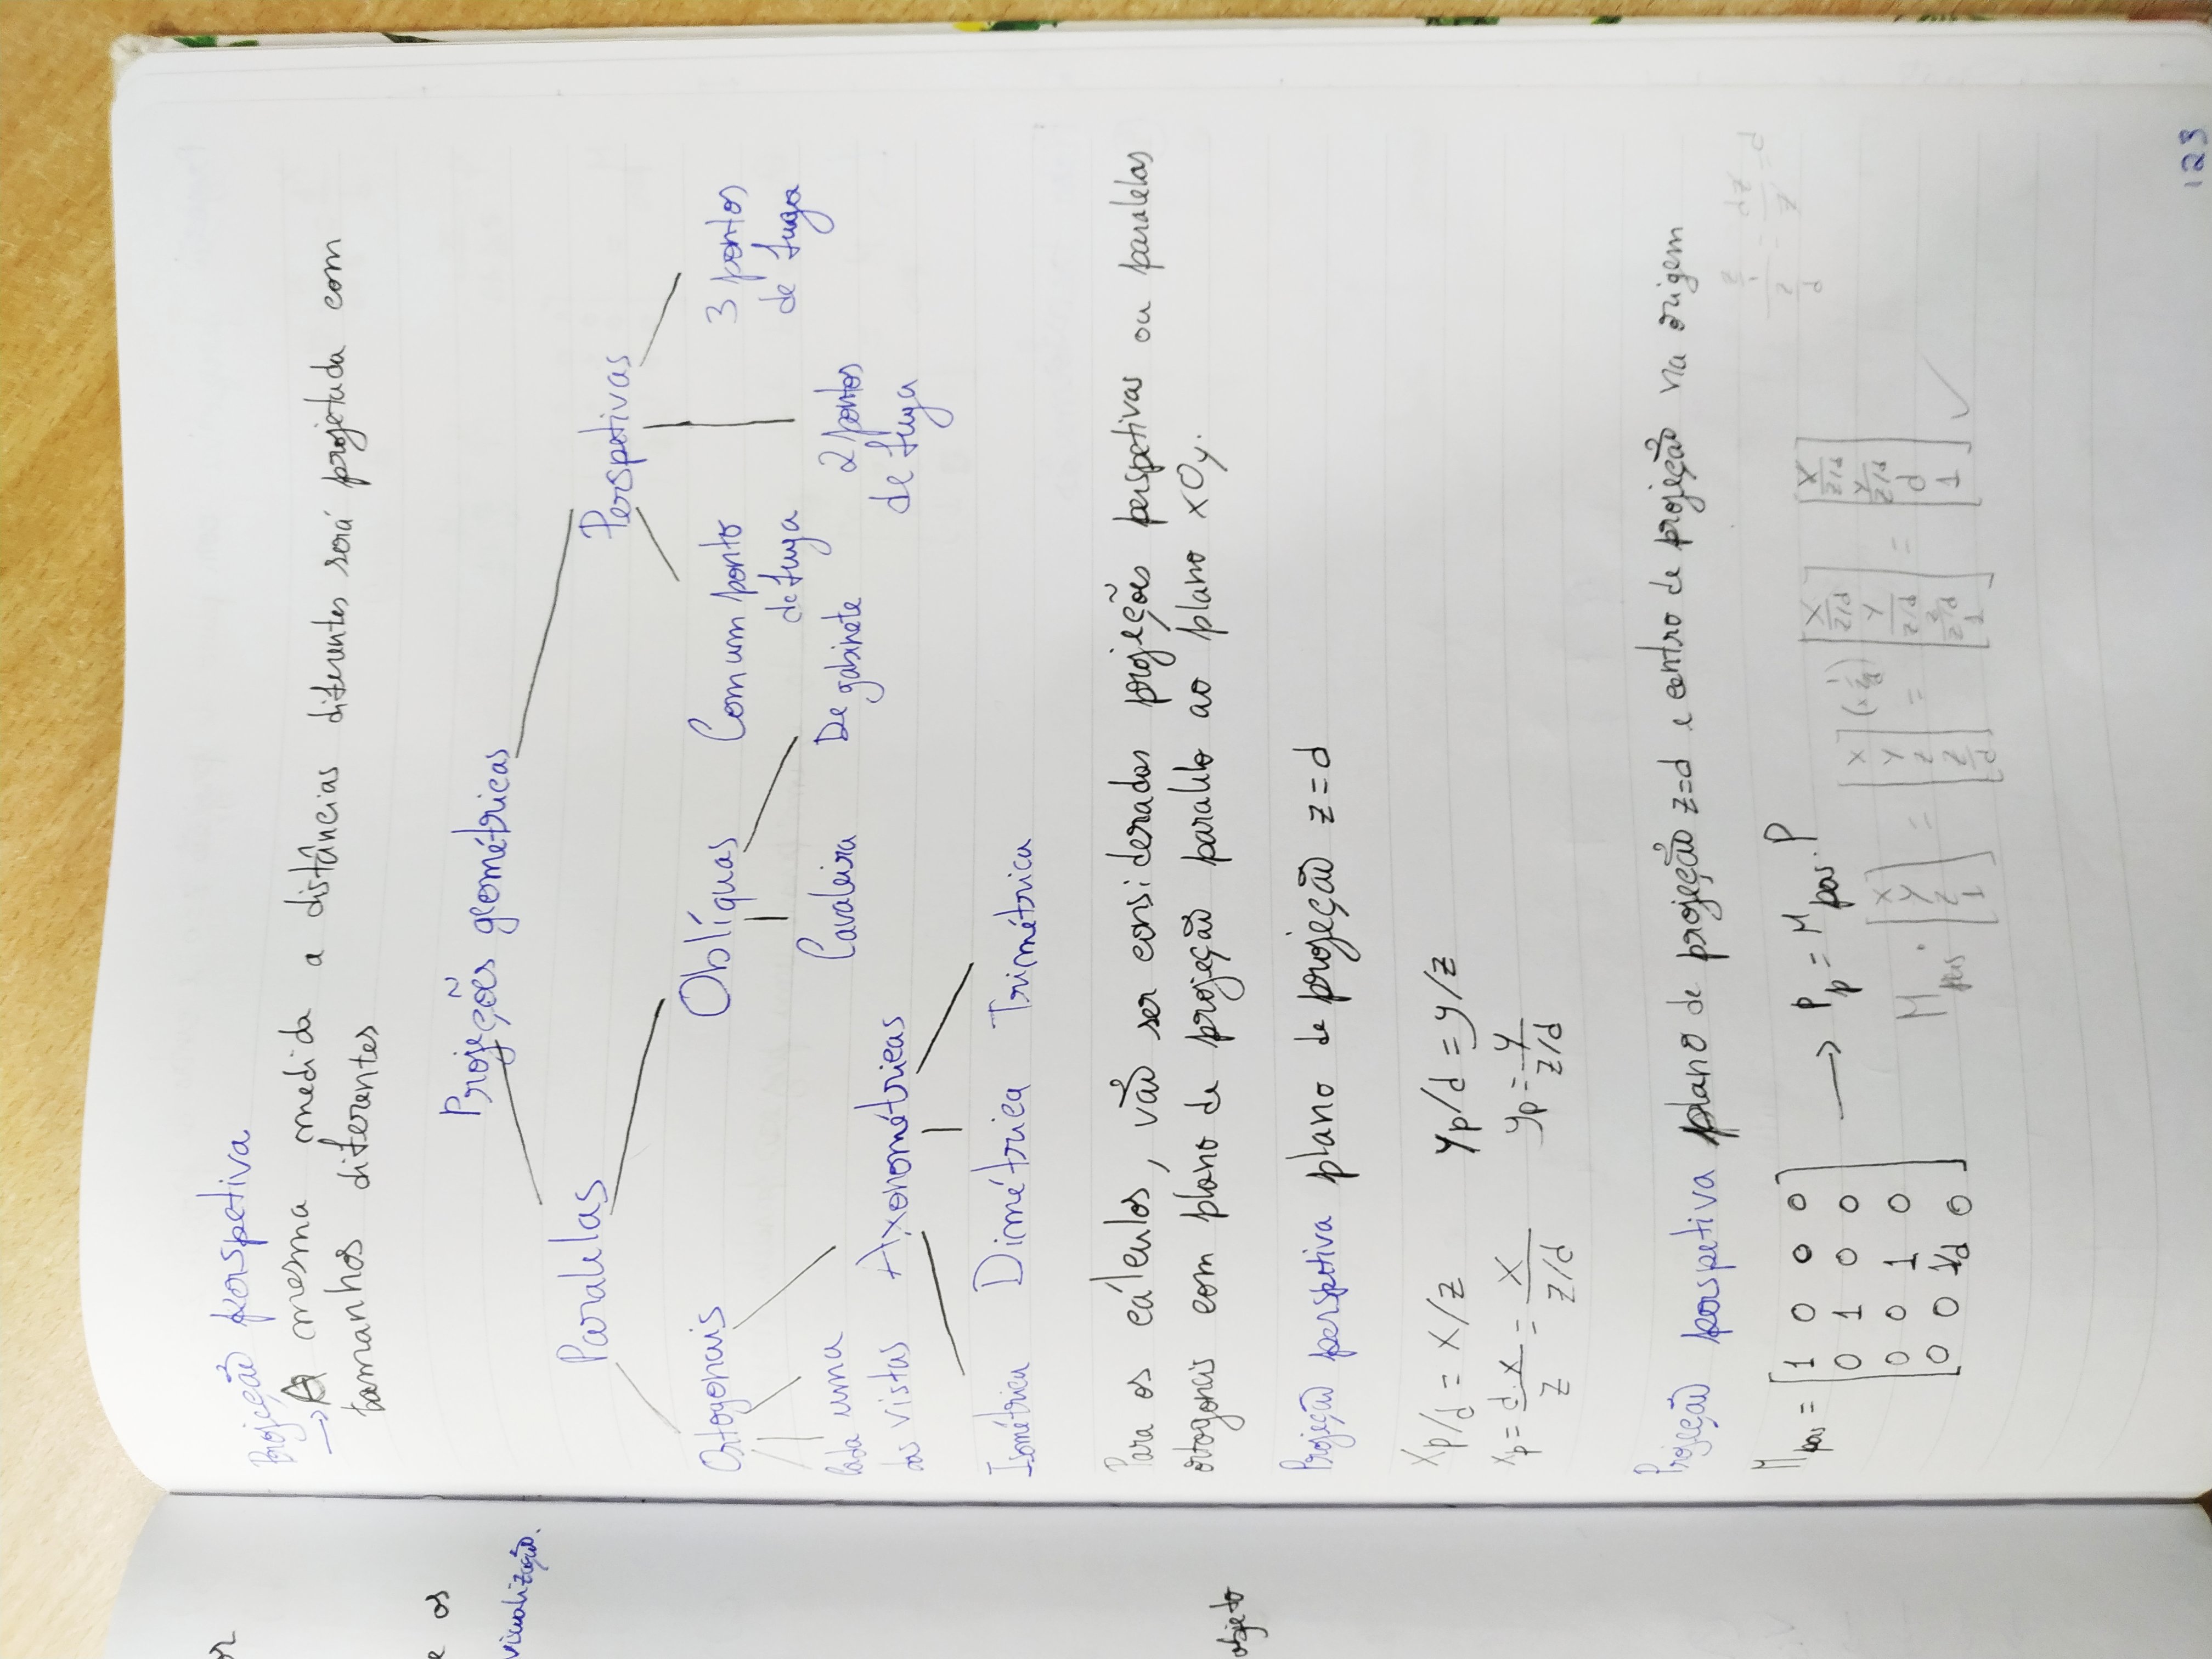 or
e os
visualização.
objeto
Projeção perspetiva
→ A mesma medida a distâncias diferentes será projetada com
tamanhos diferentes
Projeções geométricas
Paralelas Perspetivas
Ortogonais Oblíquas Com um ponto de fuga 3 pontos de fuga
Cada uma das vistas Axonométricas Cavaleira De gabinete 2 pontos de fuga
Isométrica Dimétrica Trimétrica
Para os cálculos, vão ser considerados projeções perspetivas ou paralelas
ortogonais com plano de projeção paralelo ao plano xOy.
Projeção perspetiva plano de projeção z=d
xp/d = x/z yp/d = y/z
xp = d.x/z = x/(z/d) yp = y/(z/d)
Projeção perspetiva plano de projeção z=d e centro de projeção na origem
z/1 / z/d = dz/z = d
Mpers = [1 0 0 0
0 1 0 0
0 0 1 0
0 0 1/d 0] → Pp = Mpers . P
Mpers . [x y z 1] = [x y z z/d] (x 1/(z/d)) = [x/(z/d) y/(z/d) z/(z/d) 1] = [x/(z/d) y/(z/d) d 1] ✓
123